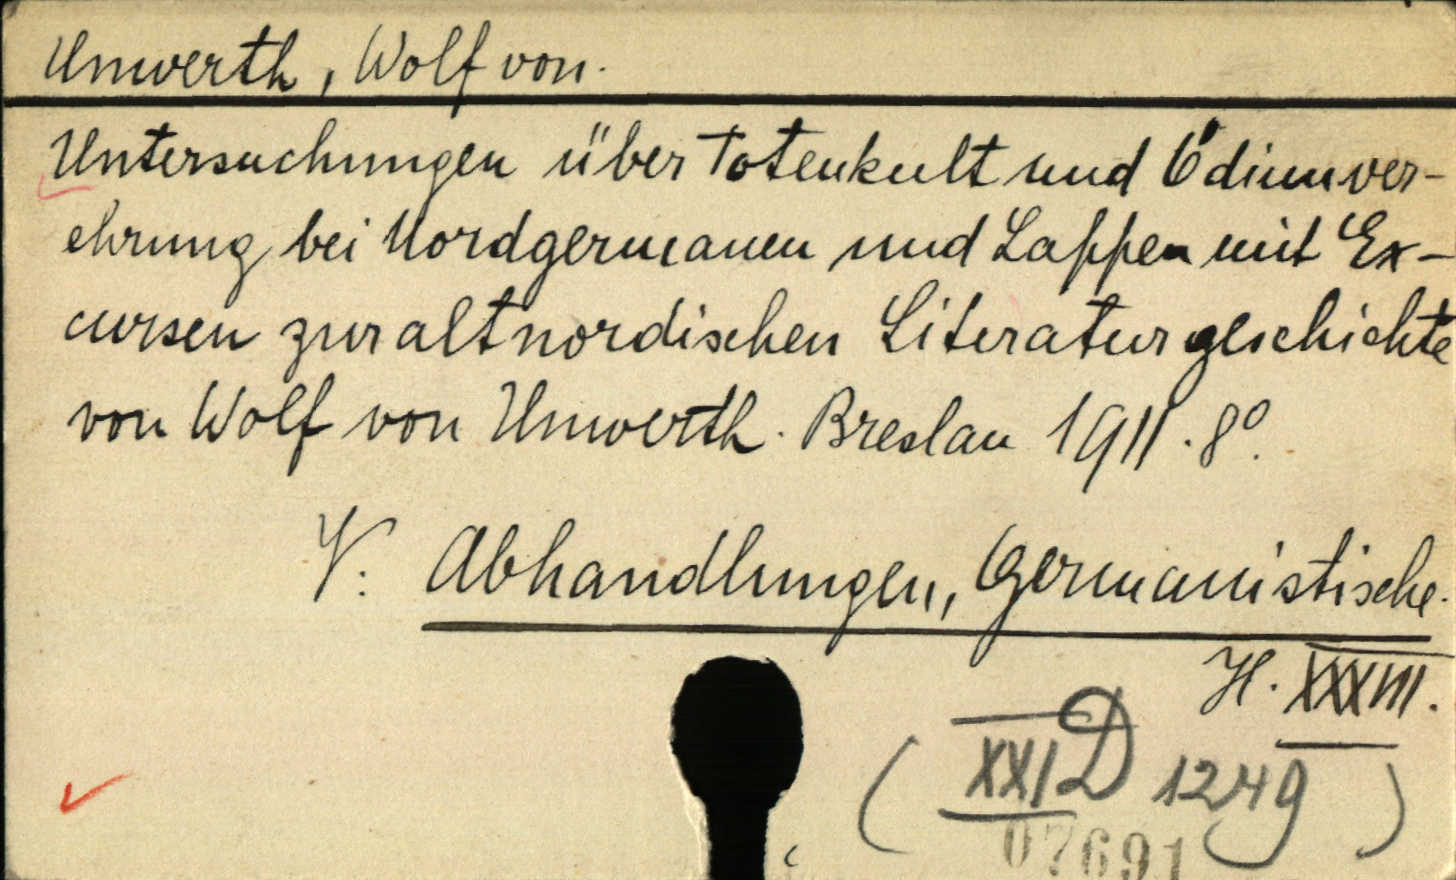 Unwerth, Wolf von.
Untersuchungen über Totenkult und Ódinnver-
ehrung bei Nordgermanen und Lappen mit Ex-
cursen zur altnordischen Literaturgeschichte
von Wolf von Unwerth. Breslau 1911. 8°.
V. Abhandlungen, Germanistische.
H. XXXVII.
( XXI D 1249 )
07691